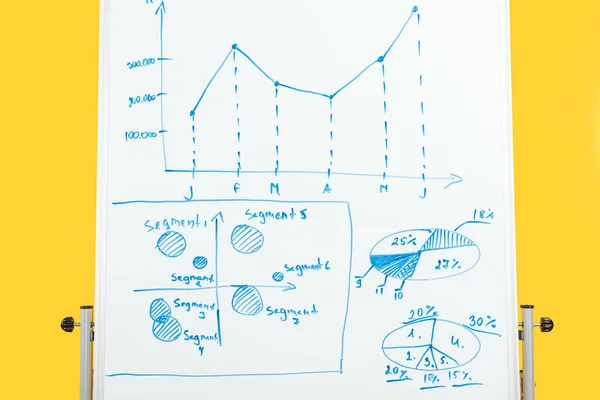 300.000
200.000
100.000
J F M A M J
Segment 1
Segment 5
Segment 2
Segment 6
Segment 3
Segment 7
Segment 4
18%
25%
27%
9 11 10
20%
30%
1. 4.
2. 3. 5.
20% 15% 15%